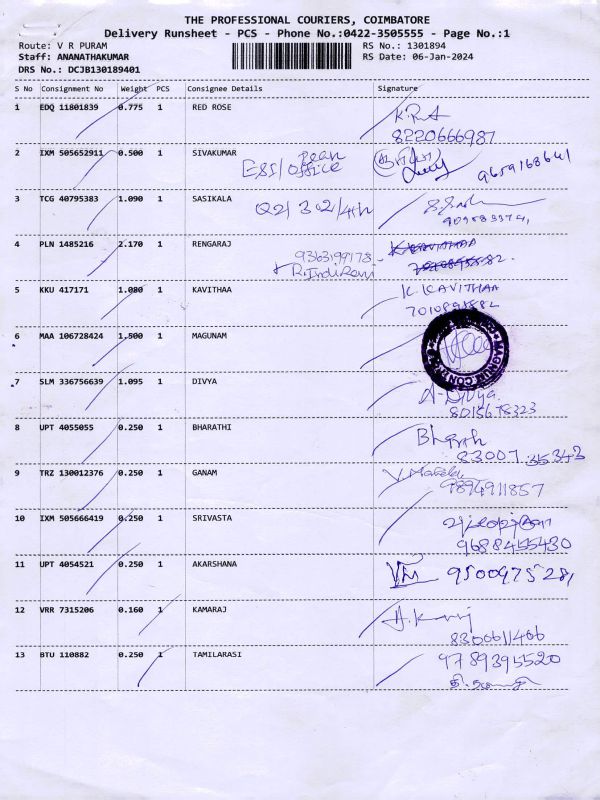 THE PROFESSIONAL COURIERS, COIMBATORE
Delivery Runsheet - PCS - Phone No.:0422-3505555 - Page No.:1
Route: V R PURAM
Staff: ANANATHAKUMAR
DRS No.: DCJB130189401
RS No.: 1301894
RS Date: 06-Jan-2024
S No Consignment No Weight PCS Consignee Details Signature
1 EDQ 11801839 0.775 1 RED ROSE K.R.A
8220666987
2 IXM 505652911 0.500 1 SIVAKUMAR 9659168641
3 TCG 40795383 1.090 1 SASIKALA
4 PLN 1485216 2.170 1 RENGARAJ 9363199178
5 KKU 417171 1.080 1 KAVITHAA K. KAVITHAA
6 MAA 106728424 1.500 1 MAGUNAM
7 SLM 336756639 1.095 1 DIVYA A. Divya
8015678323
8 UPT 4055055 0.250 1 BHARATHI
83007 35343
9 TRZ 130012376 0.250 1 GANAM
9894911857
10 IXM 505666419 0.250 1 SRIVASTA
9688455430
11 UPT 4054521 0.250 1 AKARSHANA 9500975281
12 VRR 7315206 0.160 1 KAMARAJ
8300611406
13 BTU 110882 0.250 1 TAMILARASI 9789395520